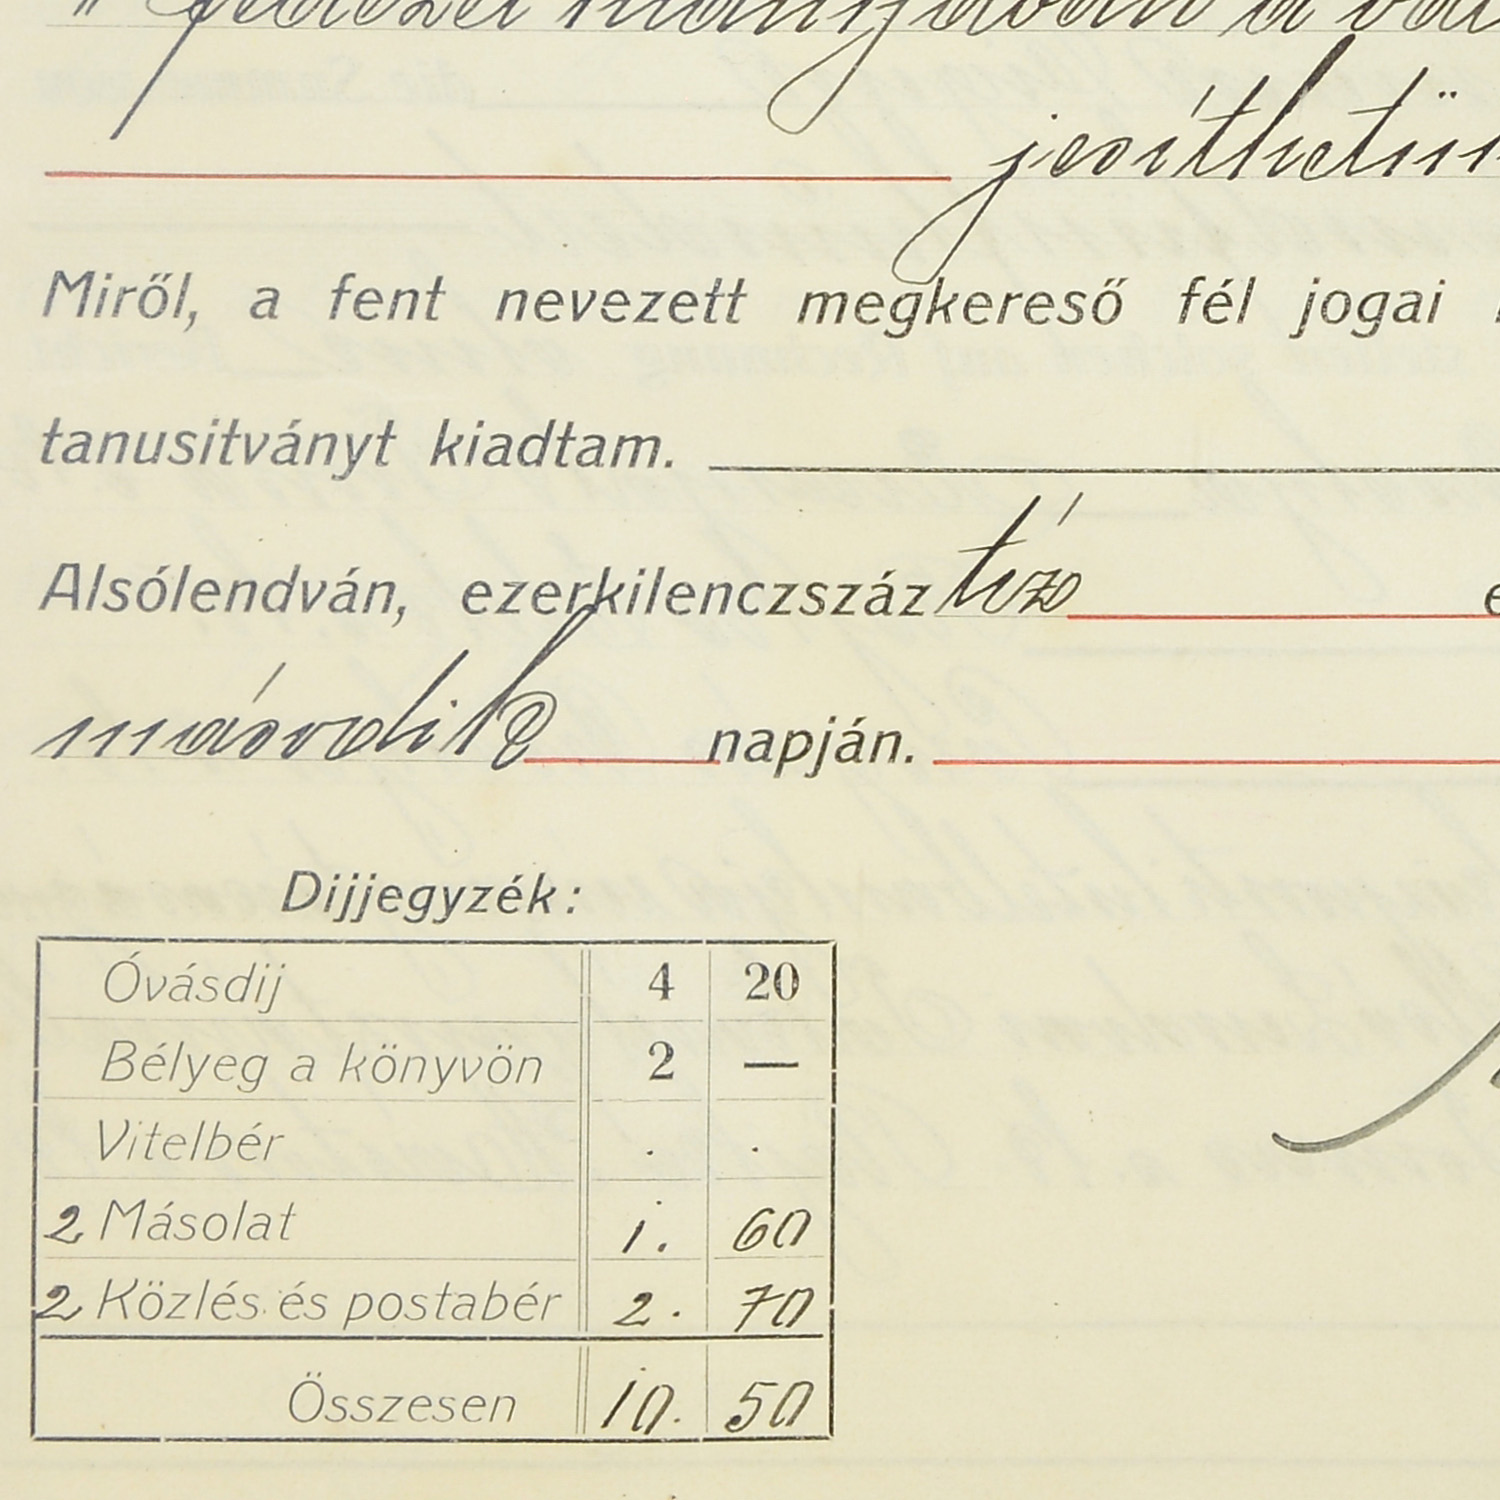 fedezet hiányában a vál
jesíthetün
Miről, a fent nevezett megkereső fél jogai
tanusitványt kiadtam.
Alsólendván, ezerkilenczszáz tíz e
második napján.
Dijjegyzék:
Óvásdij 4 20
Bélyeg a könyvön 2 —
Vitelbér . .
2 Másolat 1. 60
2 Közlés és postabér 2. 70
Összesen 10. 50